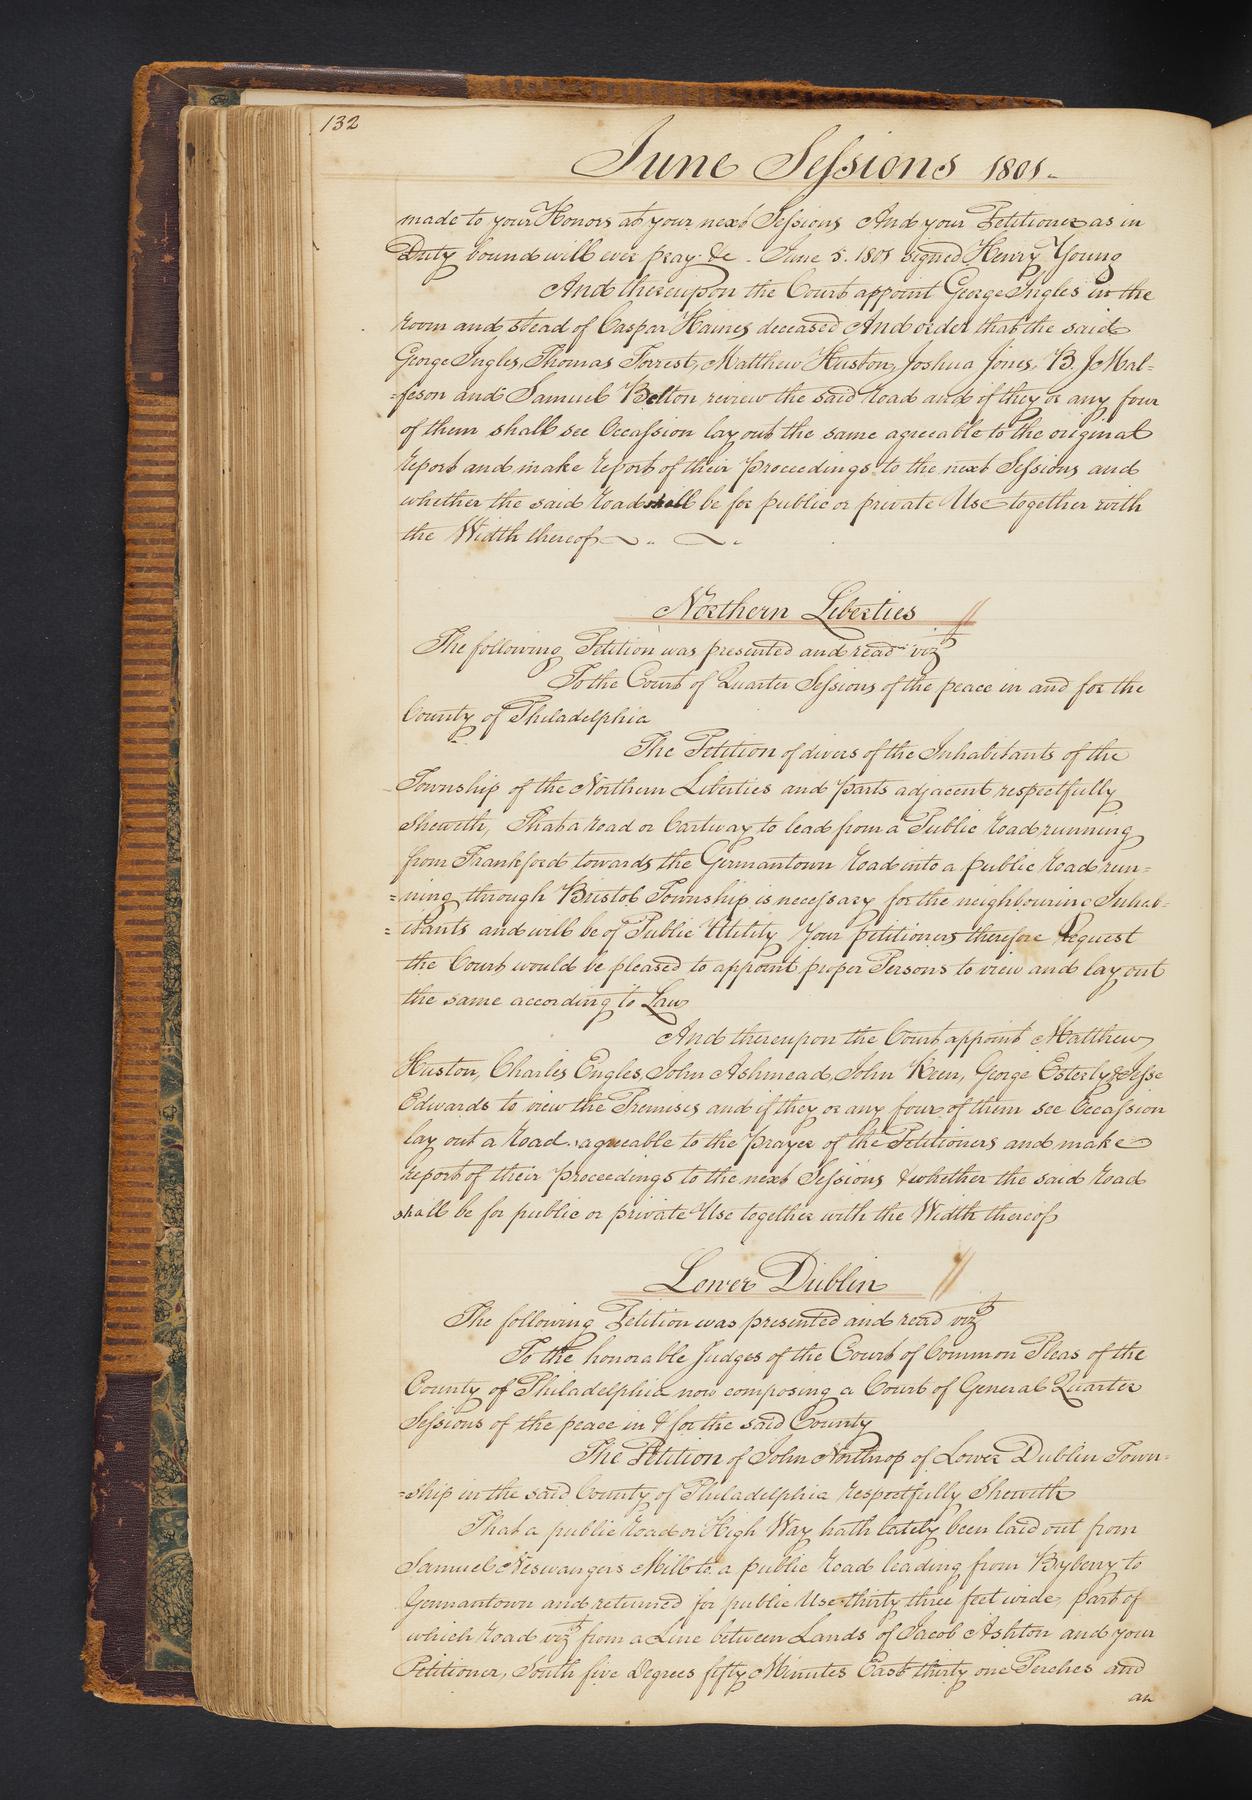 132
June Sessions 1801.
made to your Honors at your next Sessions And your Petitioner as in
Duty bound will ever pray &c. June 5. 1801 signed Henry Young
And thereupon the Court appoint George Ingles in the
room and stead of Caspar Haines deceased And order that the said
George Ingles, Thomas Forrest, Matthew Huston, Joshua Jones, B. J. Mal=
=feson and Samuel Betton review the said road and if they or any four
of them shall see Occassion lay out the same agreeable to the original
report and make report of their proceedings to the next Sessions and
whether the said road shall be for public or private Use together with
the Width thereof
Northern Liberties
The following Petition was presented and read viz
To the Court of Quarter Sessions of the peace in and for the
County of Philadelphia
The Petition of divers of the Inhabitants of the
Township of the Northern Liberties and parts adjacent respectfully
Sheweth, That a road or Cartway to lead from a Public road running
from Frankford towards the Germantown road into a public road run=
=ning through Bristol Township is necessary for the neighbouring Inhab=
=itants and will be of Public Utility Your petitioners therefore request
the Court would be pleased to appoint proper Persons to view and lay out
the same according to Law
And thereupon the Court appoint Matthew
Huston, Charles Engles, John Ashmead, John Keen, George Esterly & Jesse
Edwards to view the Premises and if they or any four of them see Occassion
lay out a road agreeable to the prayer of the Petitioners and make
report of their proceedings to the next Sessions & whether the said road
shall be for public or private Use together with the Width thereof
Lower Dublin
The following Petition was presented and read viz
To the honorable Judges of the Court of Common Pleas of the
County of Philadelphia now composing a Court of General Quarter
Sessions of the peace in & for the said County
The Petition of John Northrop of Lower Dublin Town=
=ship in the said County of Philadelphia respectfully Sheweth
That a public road or High Way hath lately been laid out from
Samuel Neswangers Mill to a public road leading from Byberry to
Germantown and returned for public Use thirty three feet wide, part of
which road viz from a Line between Lands of Jacob Ashton and your
Petitioner, South five Degrees fifty Minutes East thirty one Perches and
an